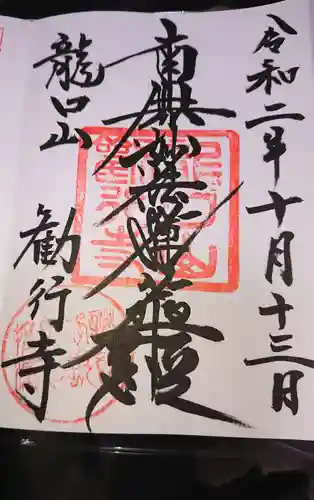 令和二年十月十三日
南無妙法蓮華経
龍口山
勧行寺